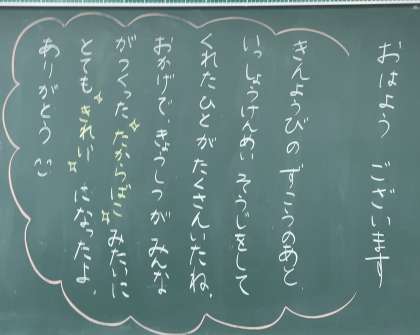 おはよう ございます
きんようびの ずこうのあと、
いっしょうけんめい そうじをして
くれたひとが たくさんいたね。
おかげで、きょうしつが みんな
がつくった たからばこ みたいに
とても きれいに になったよ。
ありがとう